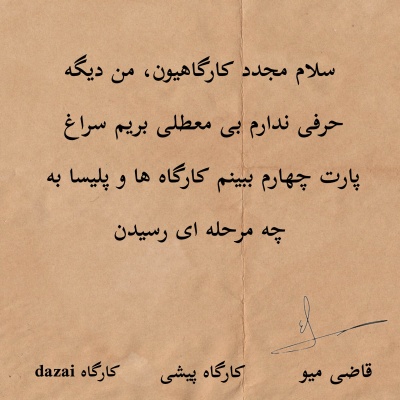 سلام مجدد کارگاهیون، من دیگه
حرفی ندارم بی معطلی بریم سراغ
پارت چهارم ببینم کارگاه ها و پلیسا به
چه مرحله ای رسیدن
قاضی میو کارگاه پیشی کارگاه dazai